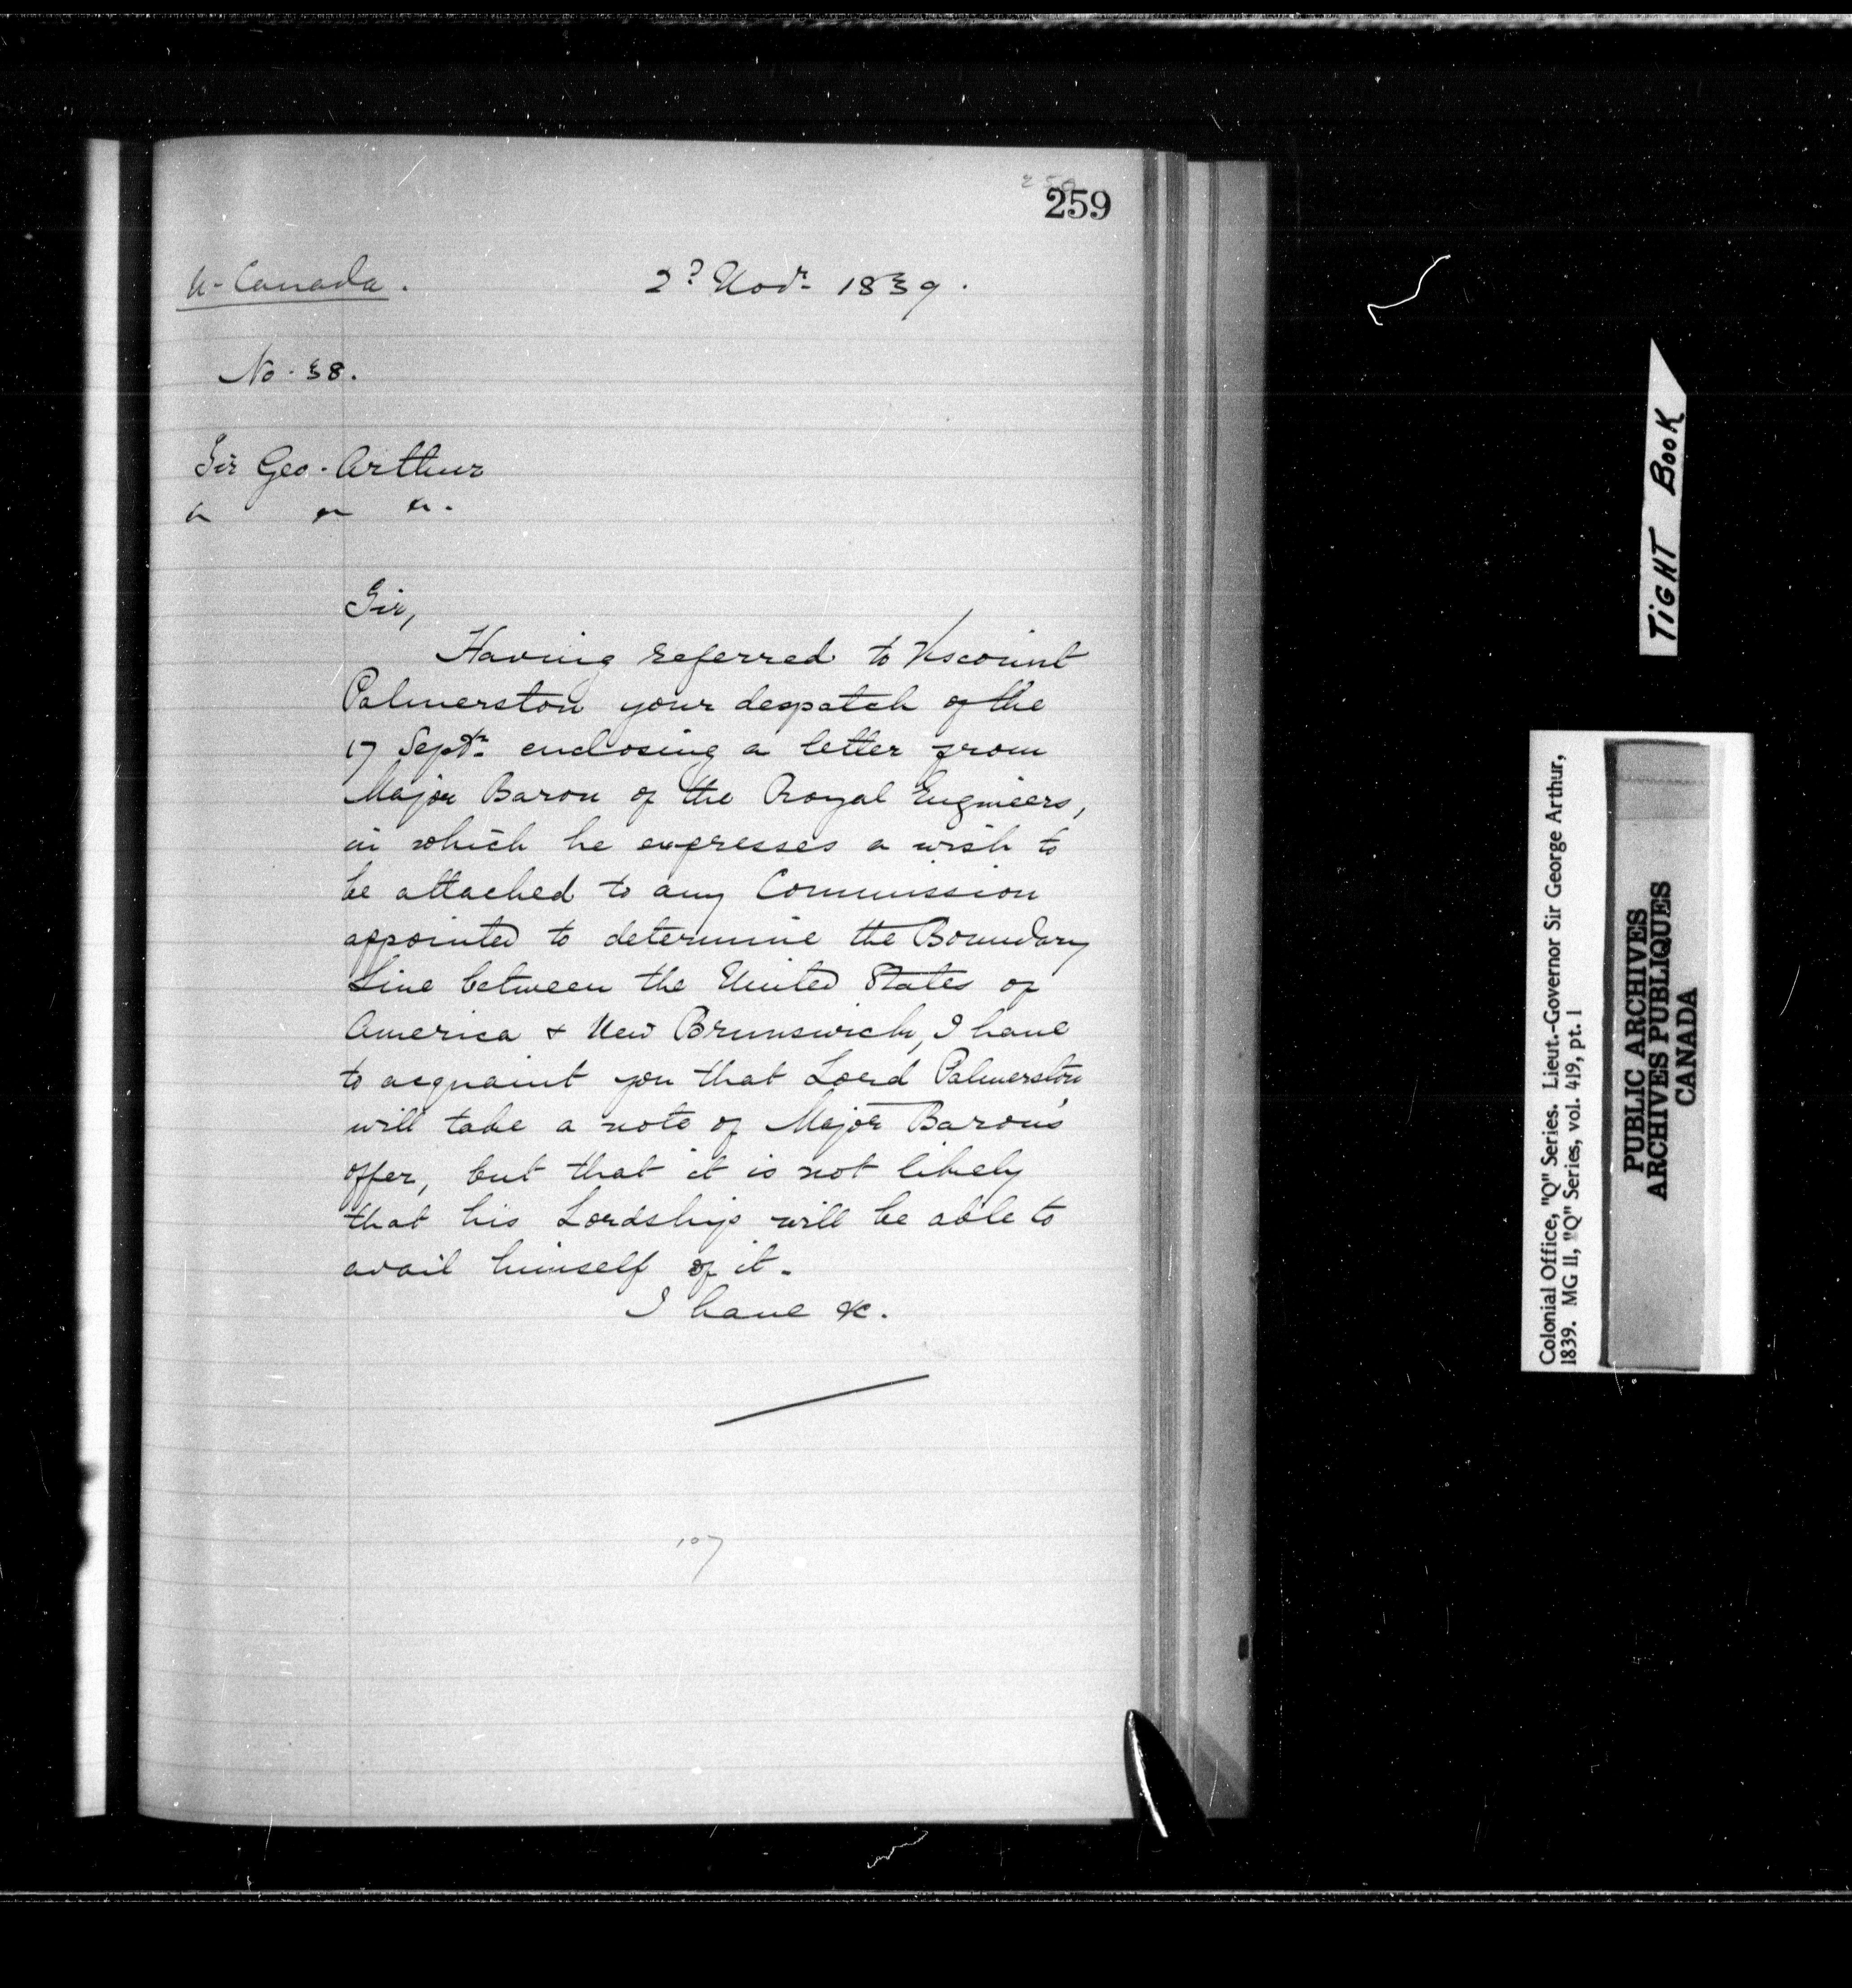 259
U. Canada.
2d Novr. 1839.
No. 38.
Sir Geo. Arthur
&c &c &c.
Sir,
Having referred to Viscount
Palmerston your despatch of the
17 Septr. enclosing a letter from
Major Baron of the Royal Engineers,
in which he expresses a wish to
be attached to any Commission
appointed to determine the Boundary
Line between the United States of
America & New Brunswick, I have
to acquaint you that Lord Palmerston
will take a note of Major Baron's
offer, but that it is not likely
that his Lordship will be able to
avail himself of it.
I have &c.
107
TIGHT BOOK
Colonial Office, "Q" Series. Lieut.-Governor Sir George Arthur,
1839. MG 11, "Q" Series, vol. 419, pt. 1
PUBLIC ARCHIVES
ARCHIVES PUBLIQUES
CANADA